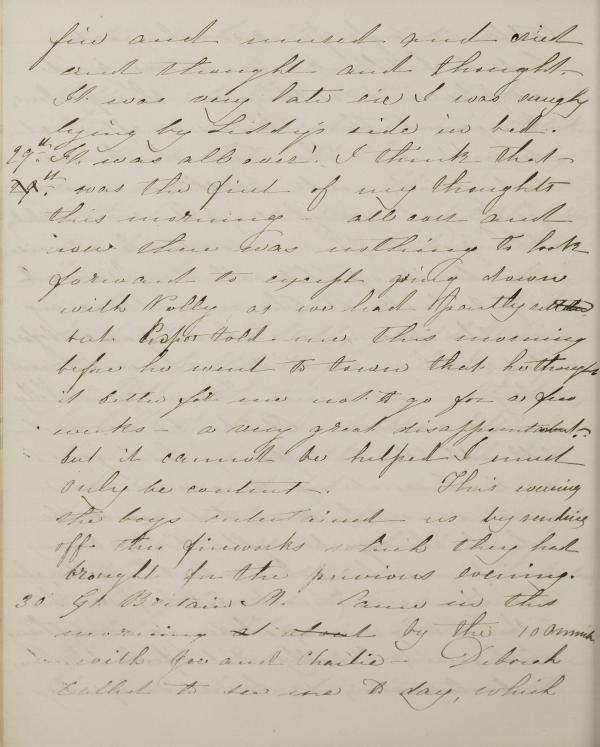 fire and mused and cried
and thought and thought.
It was very late ere I was snugly
lying by Liddy's side in bed.
29th It was all over! I think that
was the first of my thoughts
this morning - all over and
now there was nothing to look
forward to except going down
with Polly as we had partly
but Papa told me this morning
before he went to town that he thought
it better for me not to go for a few
weeks - a very great disappointment.
but it cannot be helped I must
only be content. This evening
the boys entertained us by sending
off the fireworks which they had
brought for the previous evening.
30 Gt. Britain St. Came in this
morning at about by the 10 omnib
with Joe and Charlie - Deborah
called to see me to day, which